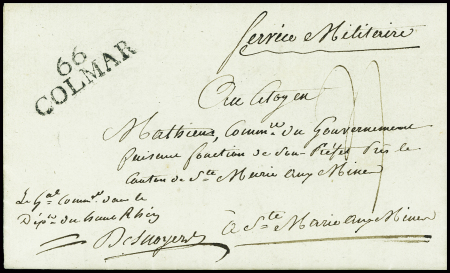 Service Militaire
66
COLMAR
Au Citoyen
Mathieu, Comm.re du Gouvernement
faisant fonction de Sous-Préfet Près le
Canton de Ste Marie aux Mines
Le Gal Comm.t dans le
Dép.t du haut Rhin
Desnoyers
à Ste Marie aux Mines